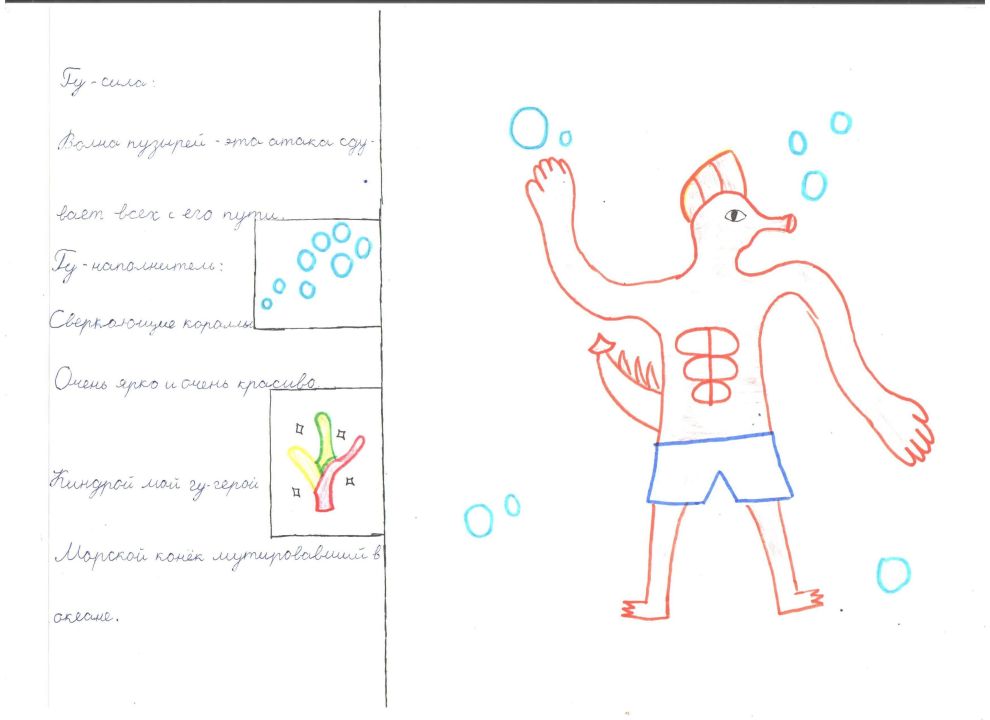 Гу-сила:
Волна пузырей - эта атака сду-
вает всех с его пути.
Гу-наполнитель:
Сверкающие кораллы
Очень ярко и очень красиво
Киндрой мой гу-герой
Морской конёк мутировавший в
океане.